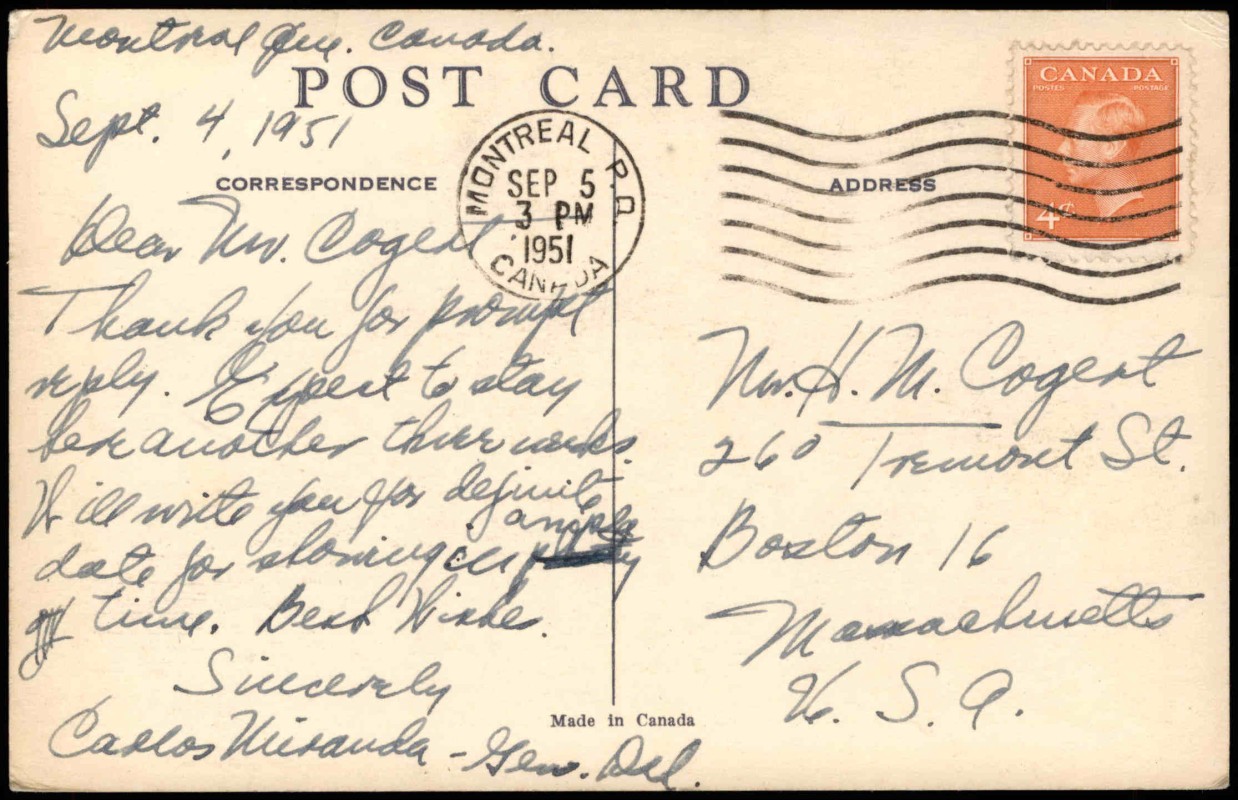 Montreal Que. Canada.
POST CARD
Sept. 4, 1951
CORRESPONDENCE
Dear Mr. Cogent
Thank you for prompt
reply. Expect to stay
here another three weeks.
Will write you for definite
date for showing in ample
time. Best Wishes.
Sincerely
Carlos Miranda - Gen. Del.
MONTREAL P.Q.
SEP 5
3 PM
1951
CANADA
ADDRESS
CANADA
POSTES POSTAGE
4¢
Mr. H. M. Cogent
260 Tremont St.
Boston 16
Massachusetts
U. S. A.
Made in Canada